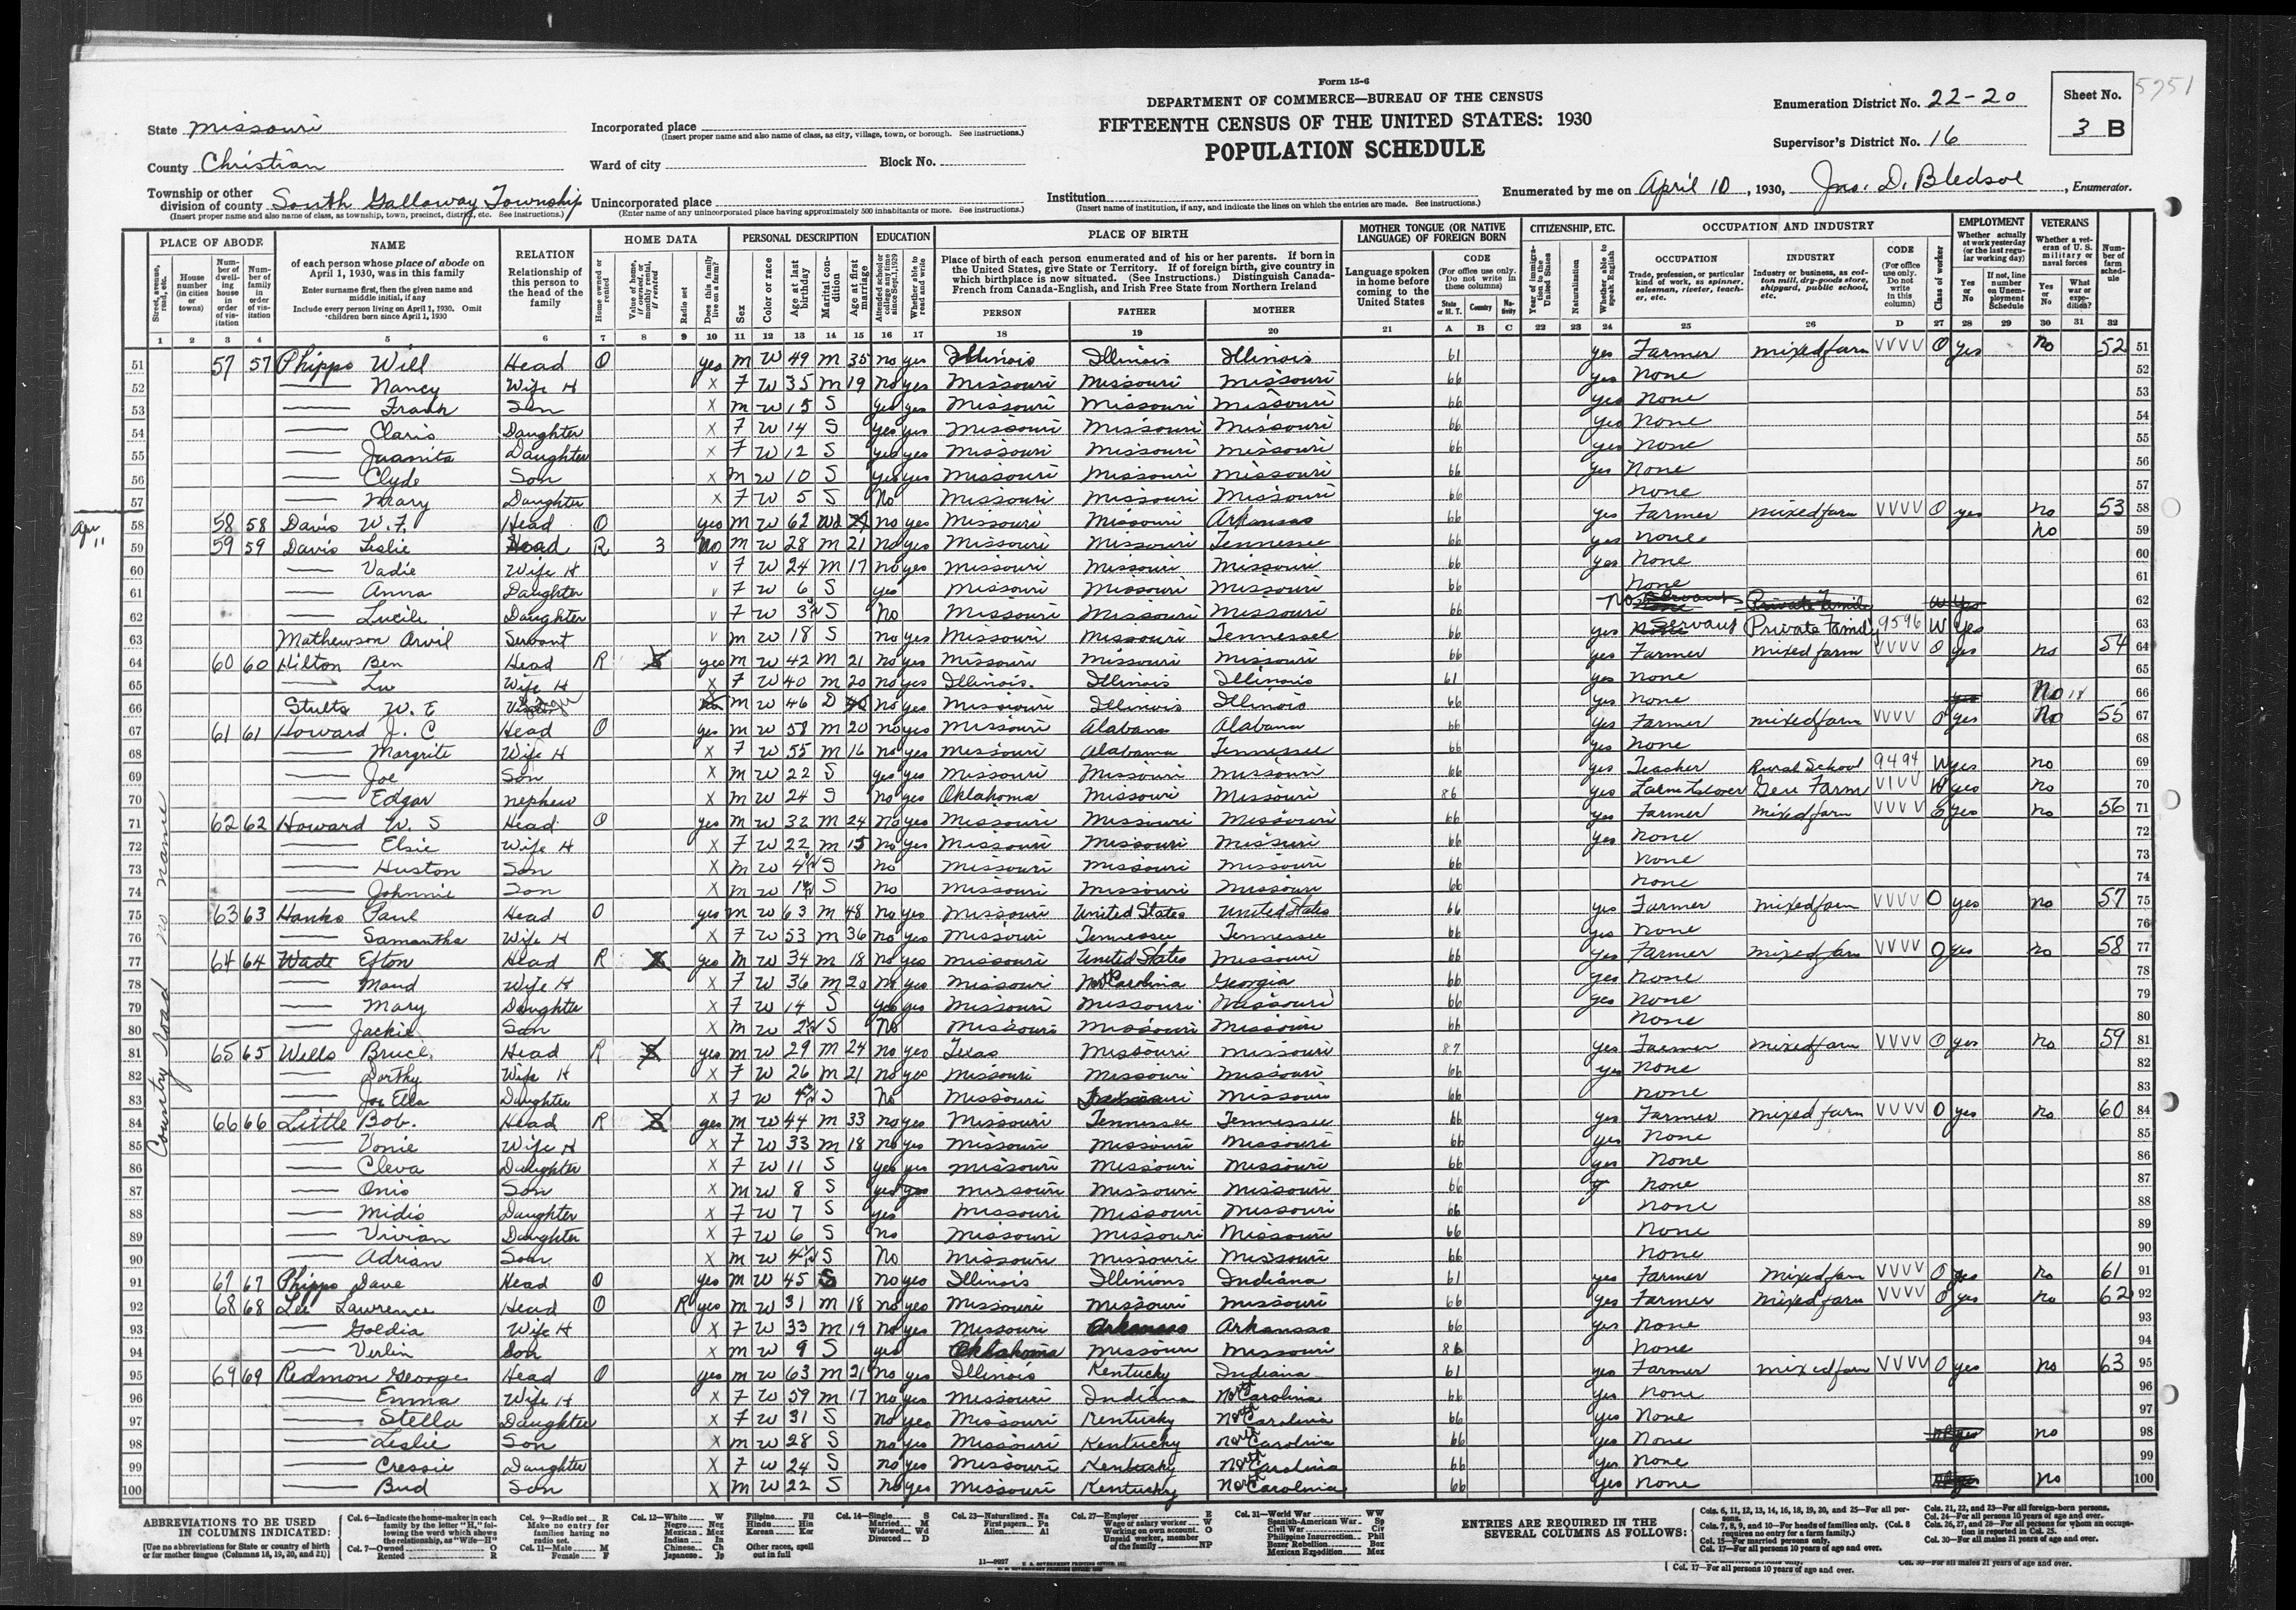 5751
Form 15-6
DEPARTMENT OF COMMERCE—BUREAU OF THE CENSUS
FIFTEENTH CENSUS OF THE UNITED STATES: 1930
POPULATION SCHEDULE
State Missouri
Incorporated place
(Insert proper name and also name of class, as city, village, town, or borough. See instructions.)
Enumeration District No. 22-20
Sheet No.
3 B
County Christian
Ward of city Block No.
Supervisor's District No. 16
Township or other division of county South Galloway Township
(Insert proper name and also name of class, as township, town, precinct, district, etc. See instructions.)
Unincorporated place
(Enter name of any unincorporated place having approximately 500 inhabitants or more. See instructions.)
Institution
(Insert name of institution, if any, and indicate the lines on which the entries are made. See instructions.)
Enumerated by me on April 10, 1930, Jno. D. Bledsoe, Enumerator.
PLACE OF ABODE NAME RELATION HOME DATA PERSONAL DESCRIPTION EDUCATION PLACE OF BIRTH MOTHER TONGUE (OR NATIVE LANGUAGE) OF FOREIGN BORN CITIZENSHIP, ETC. OCCUPATION AND INDUSTRY EMPLOYMENT VETERANS
1 2 3 4 5 6 7 8 9 10 11 12 13 14 15 16 17 18 19 20 21 A B C 22 23 24 25 26 D 27 28 29 30 31 32
51 57 57 Phipps Will Head O yes M W 49 M 35 no yes Illinois Illinois Illinois 61 yes Farmer mixed farm VVVV O yes no 52 51
52 Nancy Wife H X F W 35 M 19 no yes Missouri Missouri Missouri 66 yes None 52
53 Frank Son X M W 15 S yes yes Missouri Missouri Missouri 66 yes None 53
54 Claris Daughter X F W 14 S yes yes Missouri Missouri Missouri 66 yes None 54
55 Juanita Daughter X F W 12 S yes yes Missouri Missouri Missouri 66 yes None 55
56 Clyde Son X M W 10 S yes yes Missouri Missouri Missouri 66 yes None 56
57 Mary Daughter X F W 5 S No Missouri Missouri Missouri 66 none 57
Apr 11
58 58 58 Davis W. F. Head O yes M W 62 Wd no yes Missouri Missouri Arkansas 66 yes Farmer mixed farm VVVV O yes no 53 58
59 59 59 Davis Leslie Head R 3 No M W 28 M 21 No yes Missouri Missouri Tennessee 66 yes none no 59
60 Vadie Wife H v F W 24 M 17 no yes Missouri Missouri Missouri 66 yes None 60
61 Anna Daughter v F W 6 S yes Missouri Missouri Missouri 66 None 61
62 Lucile Daughter v F W 3 S No Missouri Missouri Missouri 66 62
63 Mathewson Arvil Servant v M W 18 S no yes Missouri Missouri Tennessee 66 yes Servant Private Family 9596 W Yes 63
64 60 60 Hilton Ben Head R yes M W 42 M 21 no yes Missouri Missouri Missouri 66 yes Farmer mixed farm VVVV O yes no 54 64
65 Lu Wife H X F W 40 M 20 no yes Illinois Illinois Illinois 61 yes none 65
66 Stults W. E M W 46 D no yes Missouri Illinois Illinois 66 yes None No 66
67 61 61 Howard J. C Head O yes M W 58 M 20 no yes Missouri Alabama Alabama 66 yes Farmer mixed farm VVVV O yes No 55 67
68 Margrite Wife H X F W 55 M 16 no yes Missouri Alabama Tennessee 66 yes None 68
69 Joe Son X M W 22 S yes yes Missouri Missouri Missouri 66 yes Teacher Rural School 9494 W yes no 69
70 Edgar nephew X M W 24 S no yes Oklahoma Missouri Missouri 86 yes Gen Farm VIVV W yes no 70
71 62 62 Howard W. S Head O yes M W 32 M 24 No yes Missouri Missouri Missouri 66 yes Farmer mixed farm VVVV O yes no 56 71
72 Elsie Wife H X F W 22 M 15 no yes Missouri Missouri Missouri 66 yes None 72
73 Huston Son X M W 4 S no Missouri Missouri Missouri 66 None 73
74 Johnnie Son X M W 1 S No Missouri Missouri Missouri 66 None 74
75 63 63 Hanks Paul Head O yes M W 63 M 48 no yes Missouri United States United States 66 yes Farmer mixed farm VVVV O yes no 57 75
76 Samantha Wife H X F W 53 M 36 no yes Missouri Tennessee Tennessee 66 yes None 76
77 64 64 Wade Efton Head R yes M W 34 M 18 No yes Missouri United States Missouri 66 yes Farmer mixed farm VVVV O yes no 58 77
78 Maud Wife H X F W 36 M 20 no yes Missouri North Carolina Georgia 66 yes None 78
79 Mary Daughter X F W 14 S yes yes Missouri Missouri Missouri 66 yes None 79
80 Jackie Son X M W 2 S No Missouri Missouri Missouri 66 None 80
81 65 65 Wells Bruce Head R yes M W 29 M 24 no yes Texas Missouri Missouri 87 yes Farmer mixed farm VVVV O yes no 59 81
82 Dorthy Wife H X F W 26 M 21 no yes Missouri Missouri Missouri 66 yes None 82
83 Joe Ella Daughter X F W S No Missouri Missouri 66 None 83
84 66 66 Little Bob. Head R yes M W 44 M 33 no yes Missouri Tennessee Tennessee 66 yes Farmer mixed farm VVVV O yes no 60 84
85 Vonie Wife H X F W 33 M 18 no yes Missouri Missouri Missouri 66 yes None 85
86 Cleva Daughter X F W 11 S yes yes Missouri Missouri Missouri 66 yes None 86
87 Onis Son X M W 8 S yes Missouri Missouri Missouri 66 None 87
88 Midis Daughter X F W 7 S yes Missouri Missouri Missouri 66 None 88
89 Vivian Daughter X F W 6 S no Missouri Missouri Missouri 66 None 89
90 Adrian Son X M W 4 S No Missouri Missouri Missouri 66 None 90
91 67 67 Phipps Dave Head O yes M W 45 S no yes Illinois Illinions Indiana 61 yes Farmer mixed farm VVVV O yes no 61 91
92 68 68 Lee Lawrence Head O R yes M W 31 M 18 no yes Missouri Missouri Missouri 66 yes Farmer mixed farm VVVV O yes no 62 92
93 Goldia Wife H X F W 33 M 19 no yes Missouri Arkansas Arkansas 66 yes None 93
94 Verlin Son X M W 9 S yes Oklahoma Missouri Missouri 86 None 94
95 69 69 Redmon George Head O yes M W 63 M 21 no yes Illinois Kentucky Indiana 61 yes Farmer mixed farm VVVV O yes no 63 95
96 Emma Wife H X F W 59 M 17 no yes Missouri Indiana North Carolina 66 yes None 96
97 Stella Daughter X F W 31 S no yes Missouri Kentucky North Carolina 66 yes None 97
98 Leslie Son X M W 28 S no yes Missouri Kentucky North Carolina 66 yes None no 98
99 Cressie Daughter X F W 24 S no yes Missouri Kentucky North Carolina 66 yes None 99
100 Bud Son X M W 22 S no yes Missouri Kentucky North Carolina 66 yes None no 100
Country road no name
ABBREVIATIONS TO BE USED IN COLUMNS INDICATED:
[Use no abbreviations for State or country of birth or for mother tongue (Columns 18, 19, 20, and 21)]
ENTRIES ARE REQUIRED IN THE SEVERAL COLUMNS AS FOLLOWS:
11—0027